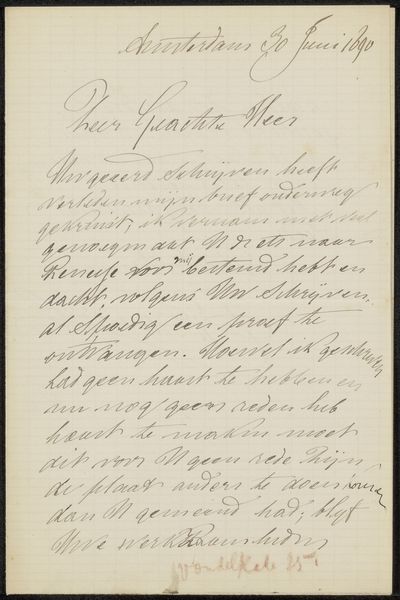 Amsterdam 30 Juni 1890
Zeer Geachte Heer
Uw geeerd schrijven heeft
verleden mijn brief onderweg
gekruist, ik vernam met veel
genoegen dat U d' ets naar
voor mij bestemd hebt en
dacht, volgens Uw schrijven
al spoedig een proef te
ontvangen. Hoewel ik geschreven
had geen haast te hebben en
nu nog geen reden heb
haast te maken moet
dit voor U geen rede zijn
de plaat anders te doen
dan U gemeend had; blijf
Uwe
Vondelkade 75